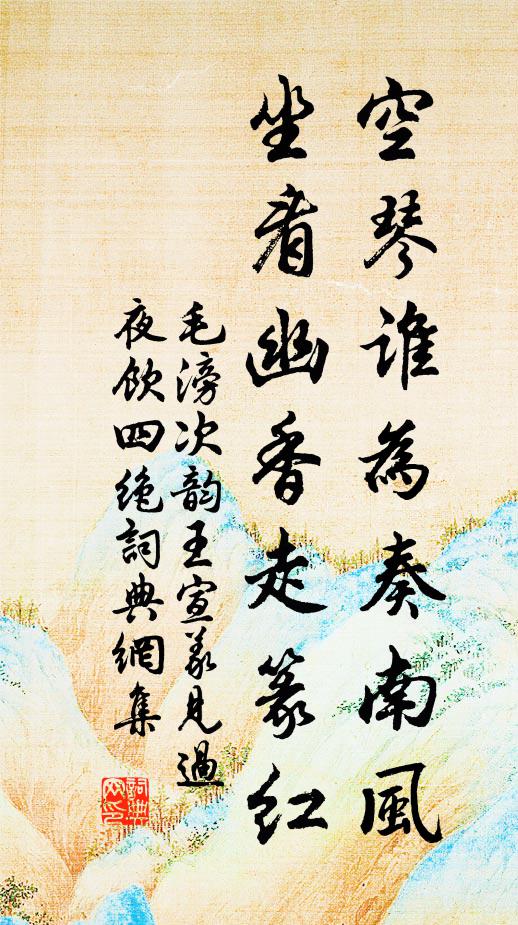 空琴誰為奏南風
坐看幽香走篆紅
毛滂次韵王宣義見過
夜飲四絶詞典網集
詞典
网印